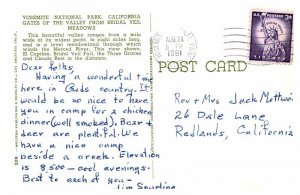 YOSEMITE NATIONAL PARK, CALIFORNIA
GATES OF THE VALLEY FROM BRIDAL VEIL
MEADOWS
This beautiful valley ranges from a mile
wide at its widest point, to eight miles long,
and is a level meadowland through which
winds the Merced River. This view shows,
El Capitan, Bridal Veil Fall, the Three Graces
and Clouds Rest in the distance.
Dear folks,
Having a wonderful time
here in Gods country. It
would be so nice to have
you in camp for a chicken
dinner (well smoked). Bear &
deer are plentiful. We
have a nice camp
beside a creek. Elevation
is 8,500 - cool evenings.
Best to each of you -
Jim Spurling
AUG 21
1961
POST CARD
3¢
Rev + Mrs Jack
26 Dale Lane,
Redlands, California